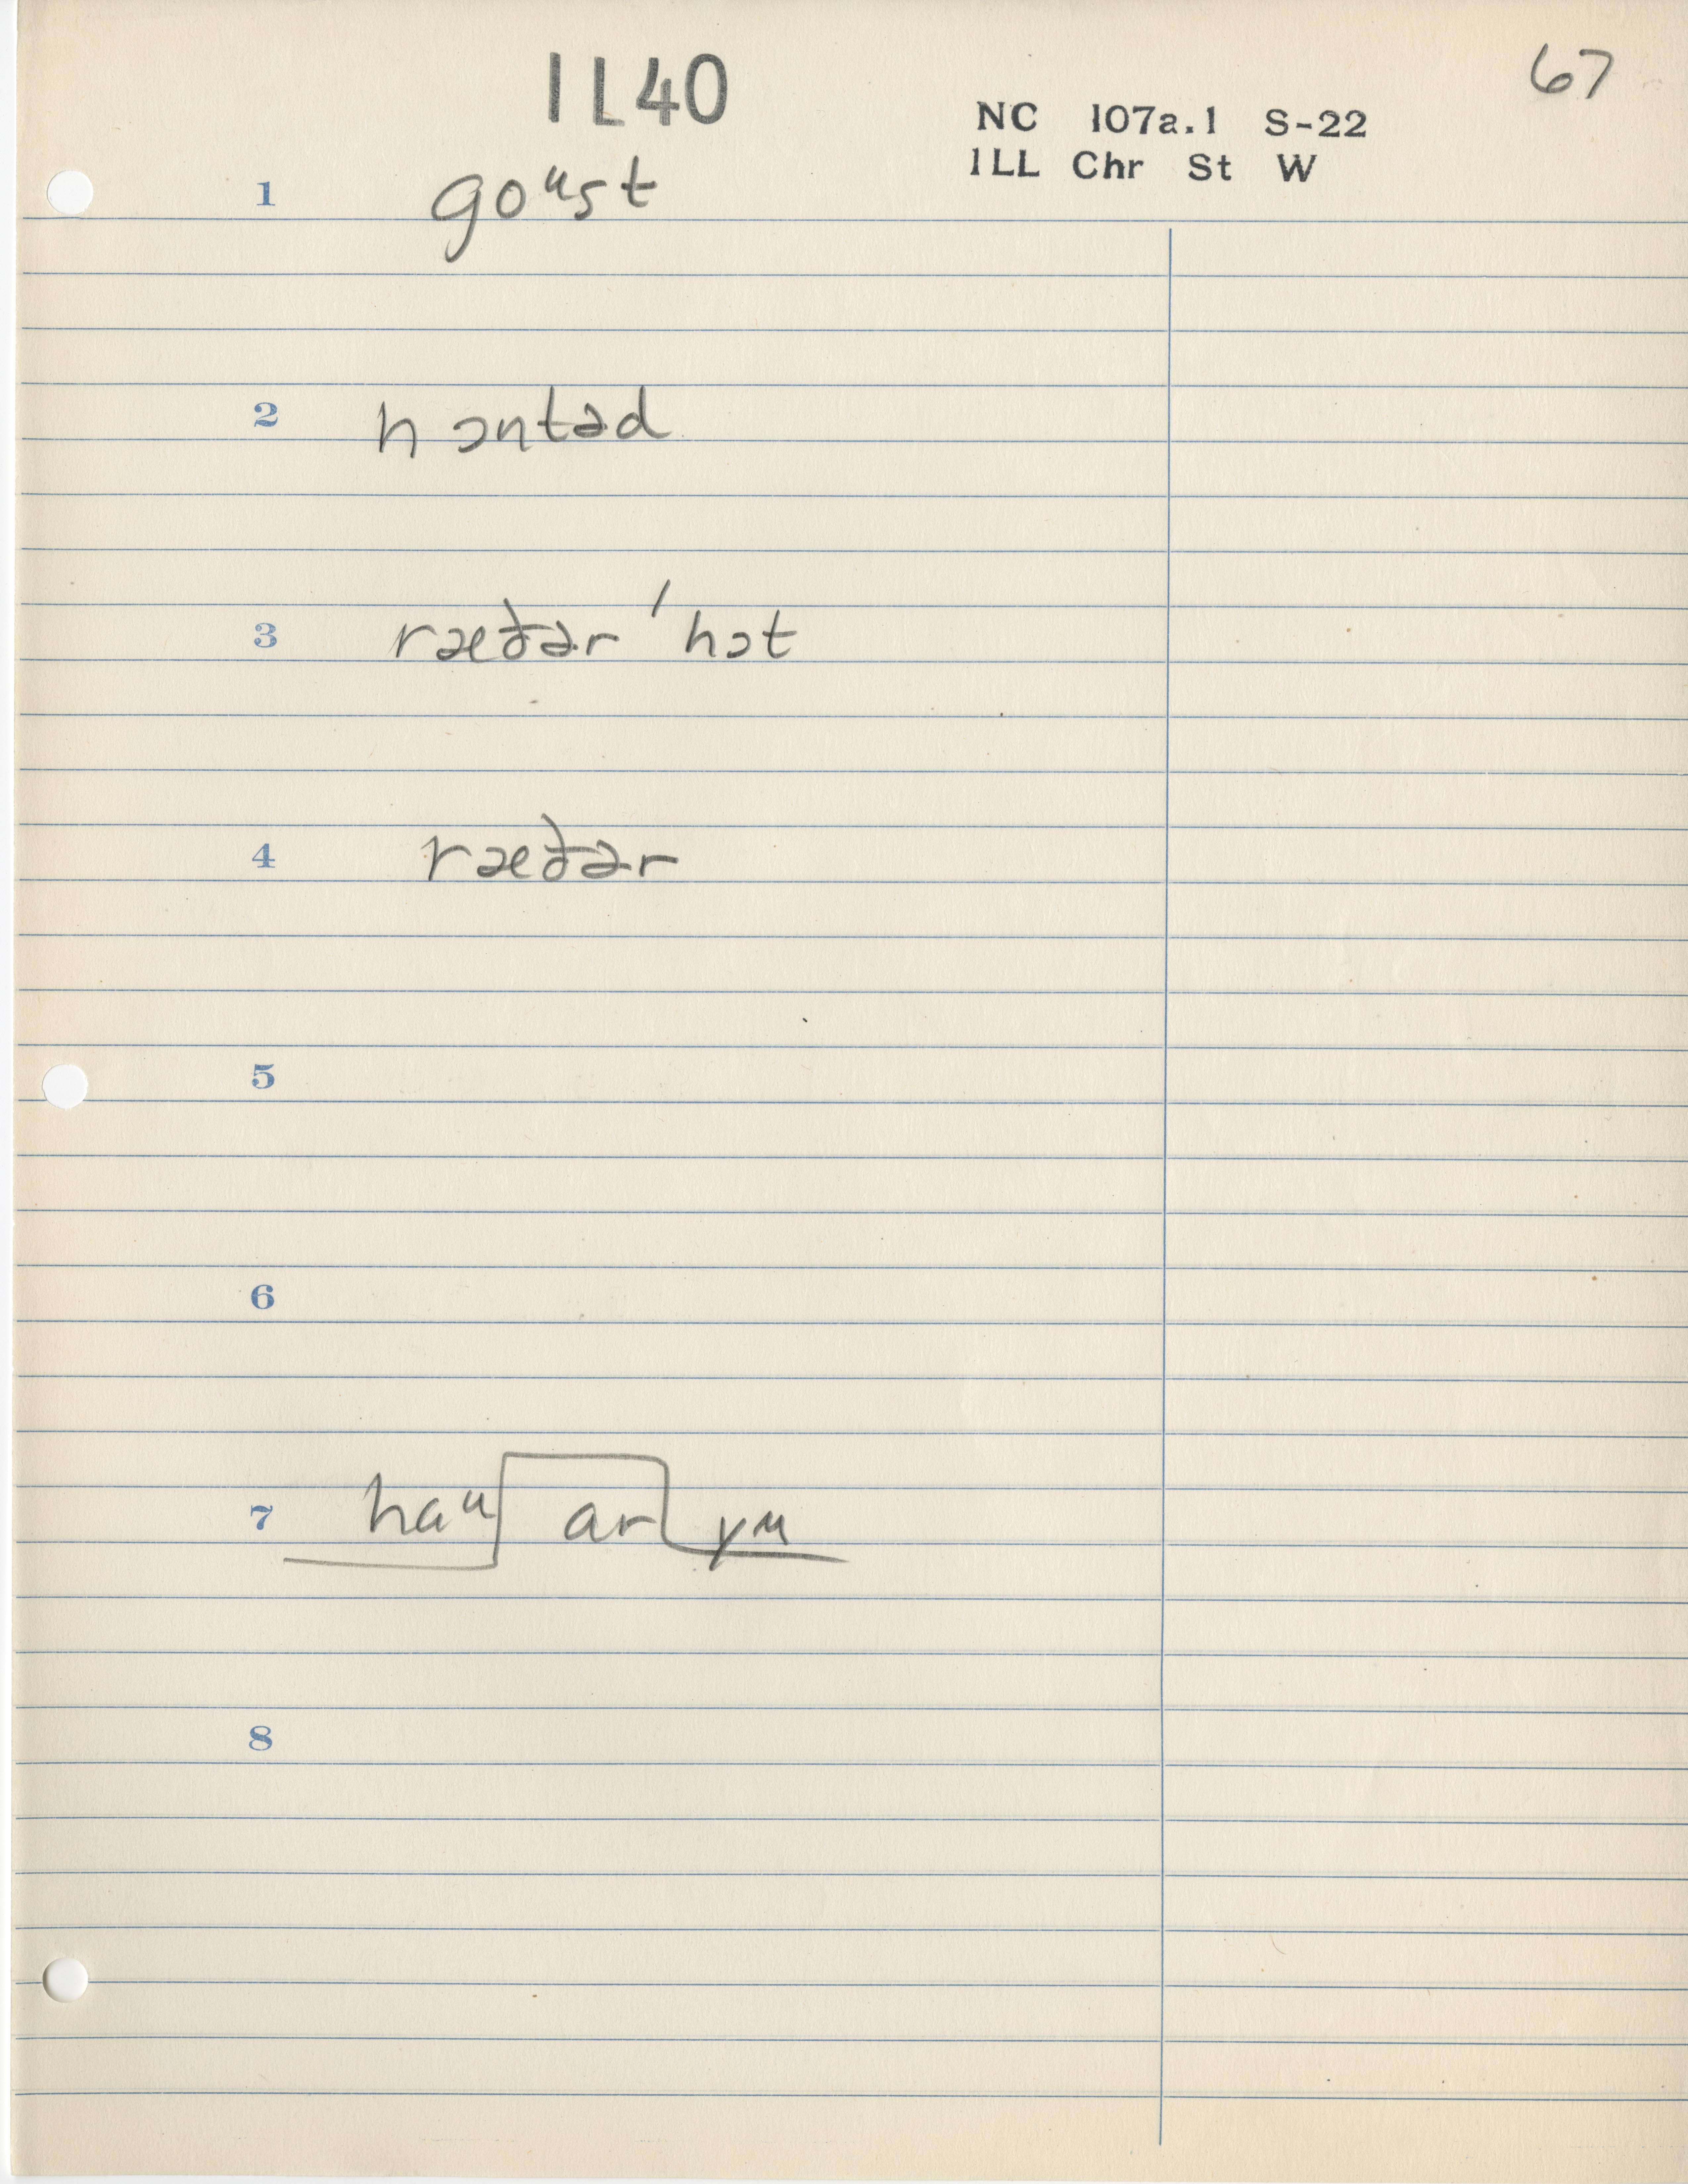 1L40
67
NC 107a.1 S-22
ILL Chr St W
1 goᵘst
2 hɔntəd
3 ræðər 'hɔt
4 ræðər
5
6
7 haᵘ ar yu
8